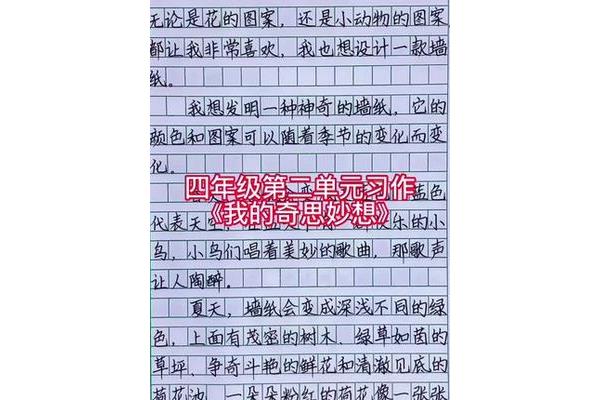 无论是花的图案，还是小动物的图案
都让我非常喜欢，我也想设计一款墙
纸。
我想发明一种神奇的墙纸，它的
颜色和图案可以随着季节的变化而变
化。
四年级第二单元习作
蓝色
《我的奇思妙想》
代表天空，
乐的小
鸟，小鸟们唱着美妙的歌曲，那歌声
让人陶醉。
夏天，墙纸会变成深浅不同的绿
色，上面有茂密的树木、绿草如茵的
草坪、争奇斗艳的鲜花和清澈见底的
荷花池，一朵朵粉红的荷花像一张张